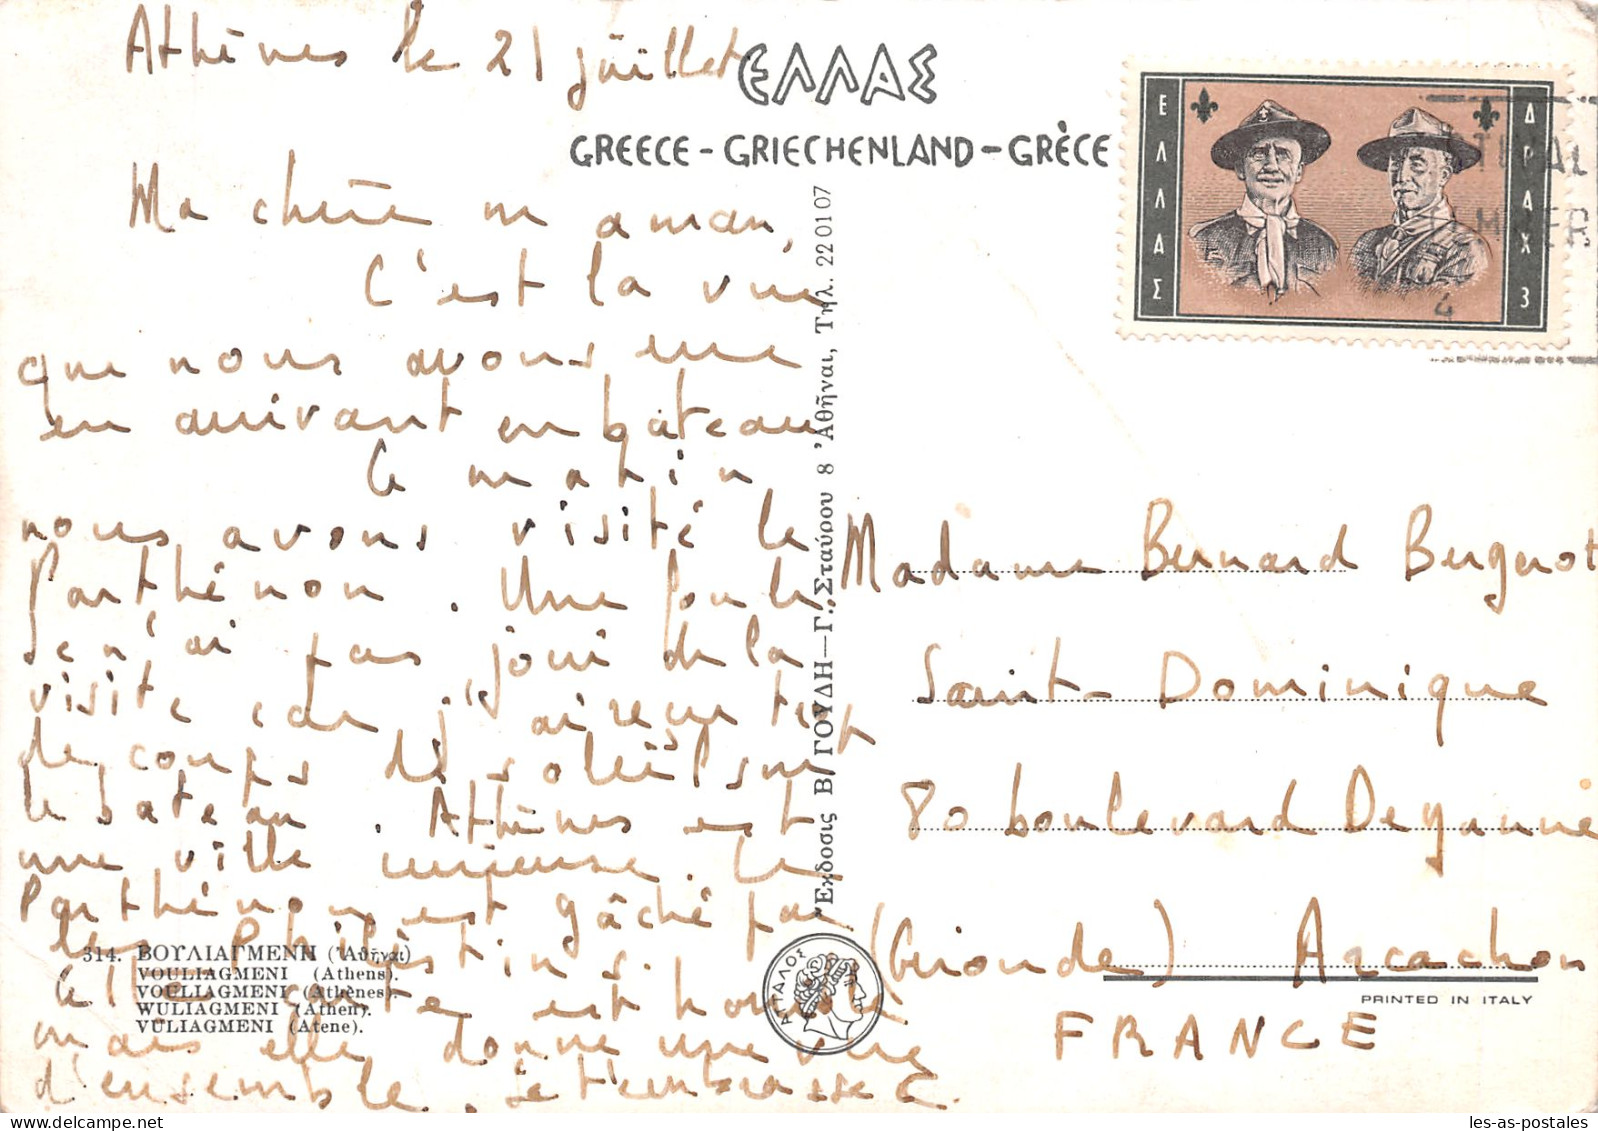 Athènes le 21 juillet
ΕΛΛΑΣ
GREECE - GRIECHENLAND - GRÈCE
Ma chère maman,
C'est la vue
que nous avons eue
en arrivant en bateau
Ce matin
nous avons visité le
Parthénon. Une foule,
je n'ai pas joui de la
visite car j'ai reçu trop
de coups de soleil sur
le bateau. Athènes est
une ville curieuse. Le
Parthénon est gâché par
les Philistins.
Cette carte est horrible
mais elle donne une vue
d'ensemble. Je t'embrasse C.
314. ΒΟΥΛΙΑΓΜΕΝΗ (Ἀθῆναι)
VOULIAGMENI (Athens).
VOULIAGMENI (Athènes).
WULIAGMENI (Athen).
VULIAGMENI (Atene).
Ἔκδοσις Β. ΓΟΥΔΗ—Γ. Σταύρου 8 Ἀθῆναι, Τηλ. 220107
ΑΤΤΑΛΟΣ
ΕΛΛΑΣ
ΔΡΑΧ 3
4
Madame Bernard Bergerot
Saint-Dominique
80 boulevard Deganne
(Gironde) Arcachon
PRINTED IN ITALY
FRANCE
les-as-postales